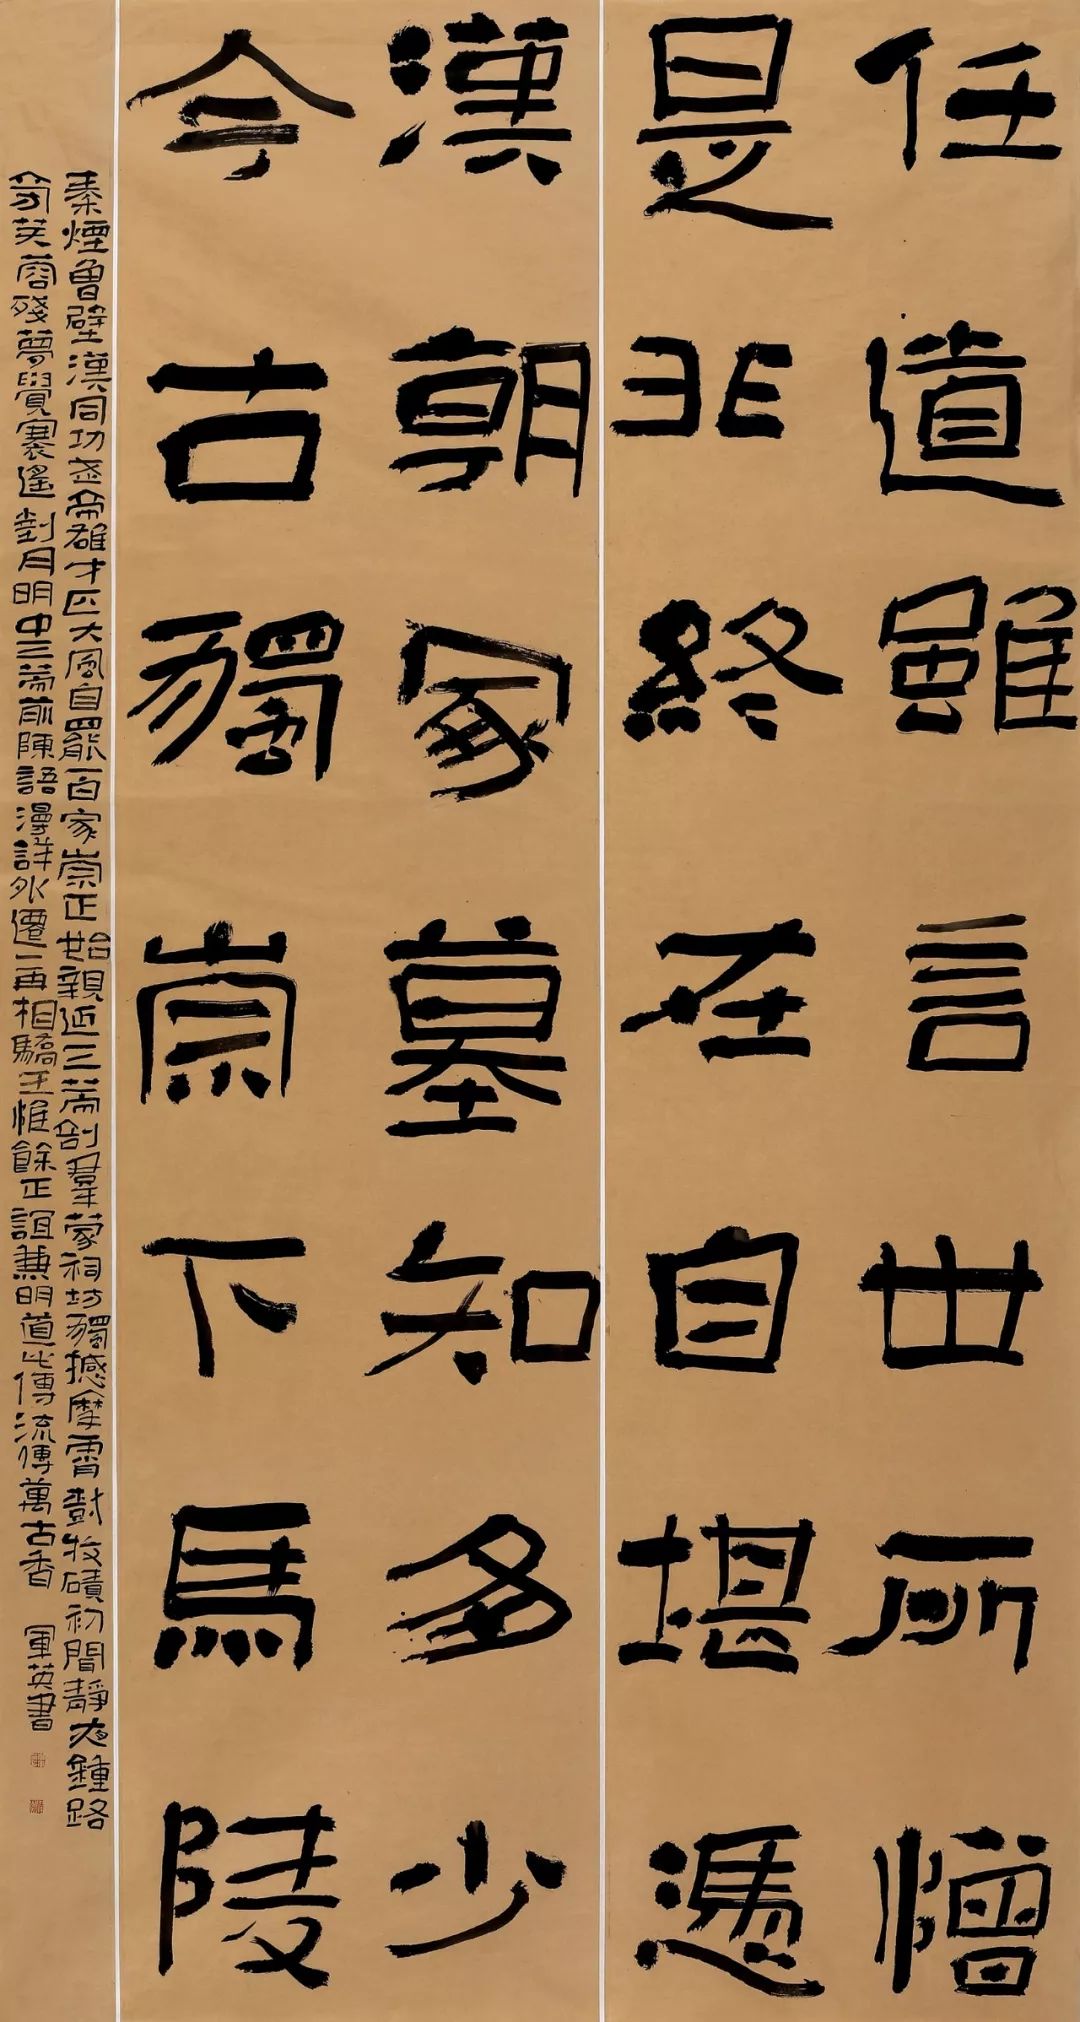 任道雖言世所憎
是非終在自堪憑
漢朝冢墓知多少
今古獨崇下馬陵
秦煙魯壁漢同功武帝雄才匹大風自罷百家崇正始親延三策剖羣蒙祠坊獨撼摩霄樹牧磧初聞靜夜鍾路
旁芙蓉殘夢覺遙對月明中三策前陳語漫詳外遷一再相驕王惟餘正誼兼明道此傳流傳萬古香 軍英書